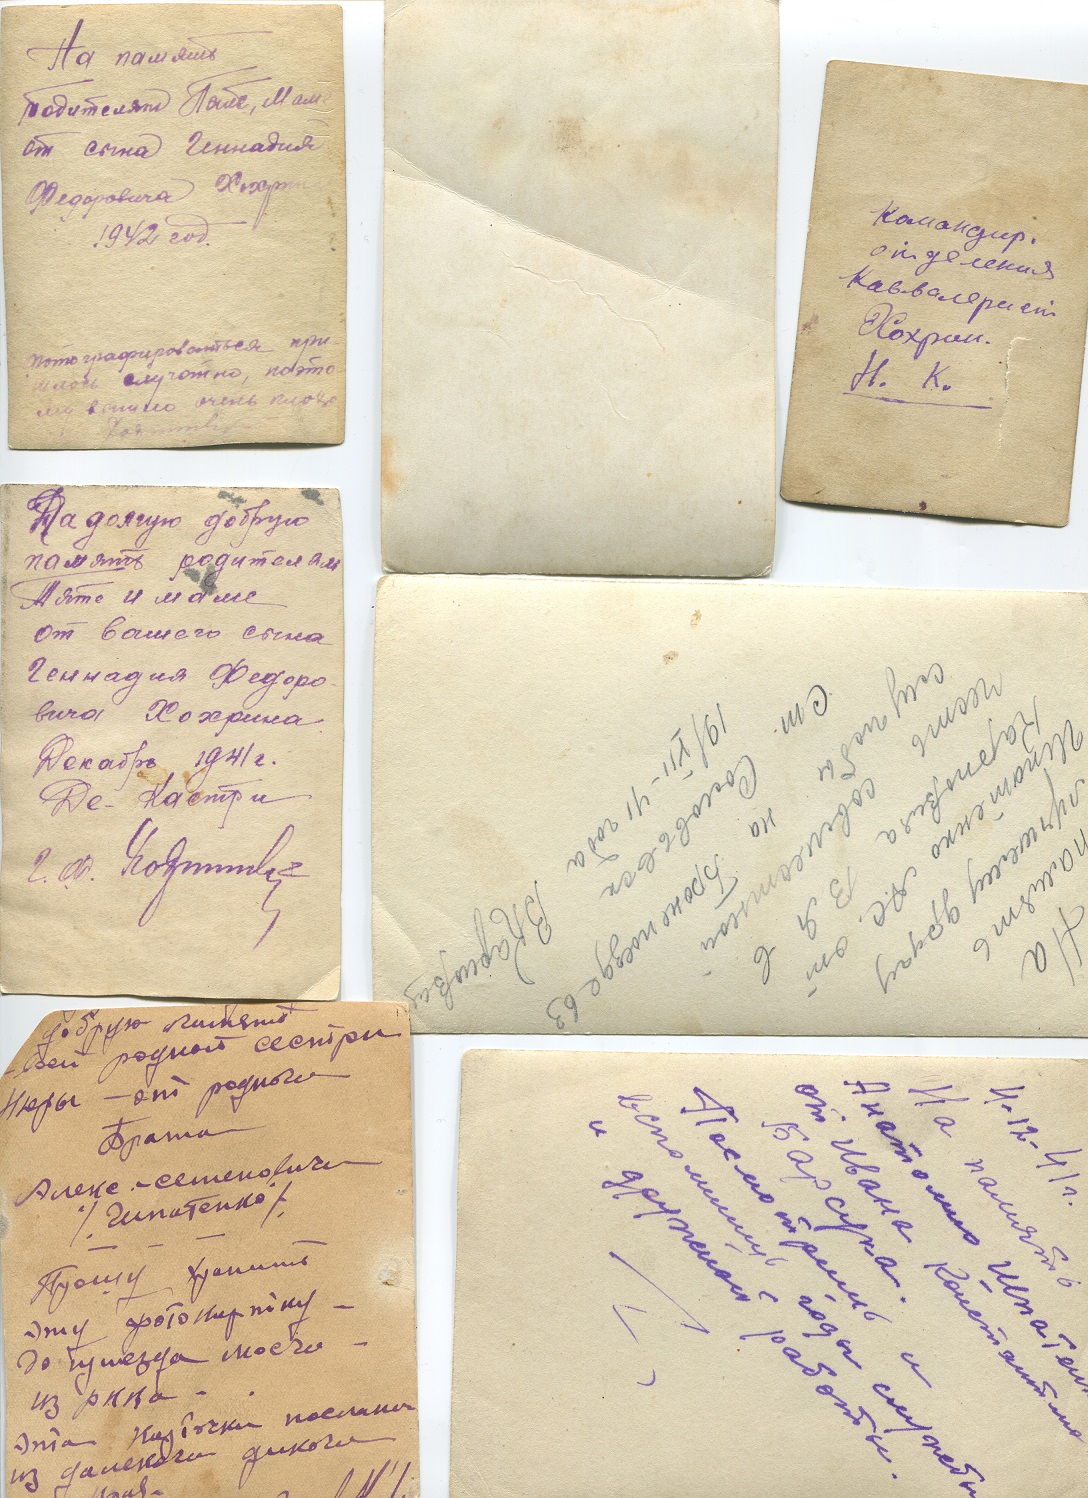 На память
родителям Папе, Маме
от сына Геннадия
Федоровича Хохри
1942 год.
потографироваться при-
шлось случайно, поэто
му вышло очень плохо
Командир.
отделения
Кавалерист
Хохрин.
Н. К.
На долгую добрую
память родителям
Тяте и маме
от вашего сына
Геннадия Федоро-
вича Хохрина
Декабрь 1941 г.
Де-Кастри
Г. Ф.
На
память
лучшему другу
Ипатенко А.С. от
Карповича В Я в
честь совместной
службы на Бронепоезде 63
ст. Соловьевск
19/XII-41 года
добрую память
своей родной сестры
Нюры - от родного
Брата
Алекс.-семеновича
/Ипатенко/.
Прошу хранить
эту фотокарточку -
до приезда моего -
из ркка -
Эта карточка послана
из далекого дикого
4-12-41 г.
На память
Анатолию Ипатенко
от Ивана Констант
Барсука.
Посмотришь и
вспомнишь годы службы
и дружной работы.